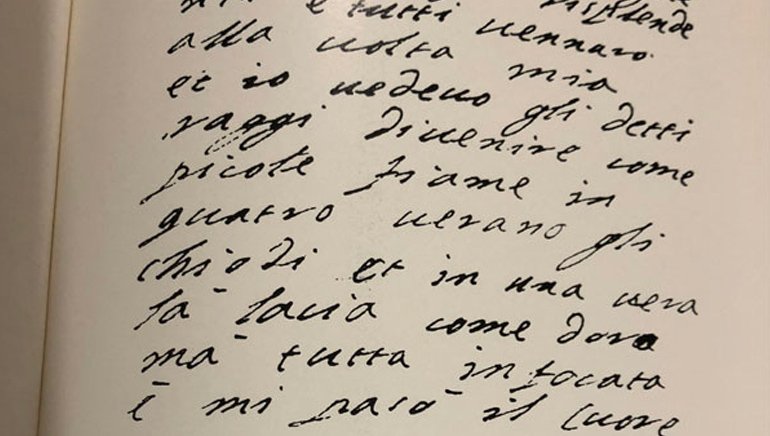 e tutti risplende
alla uolta uennaro
et io uedeuo mia
raggi diuenire gli detti
picole fiame in come
quatro uerano gli
chiodi et in una uera
la lacia come doro
ma tutta infocata
è mi pasò il cuore